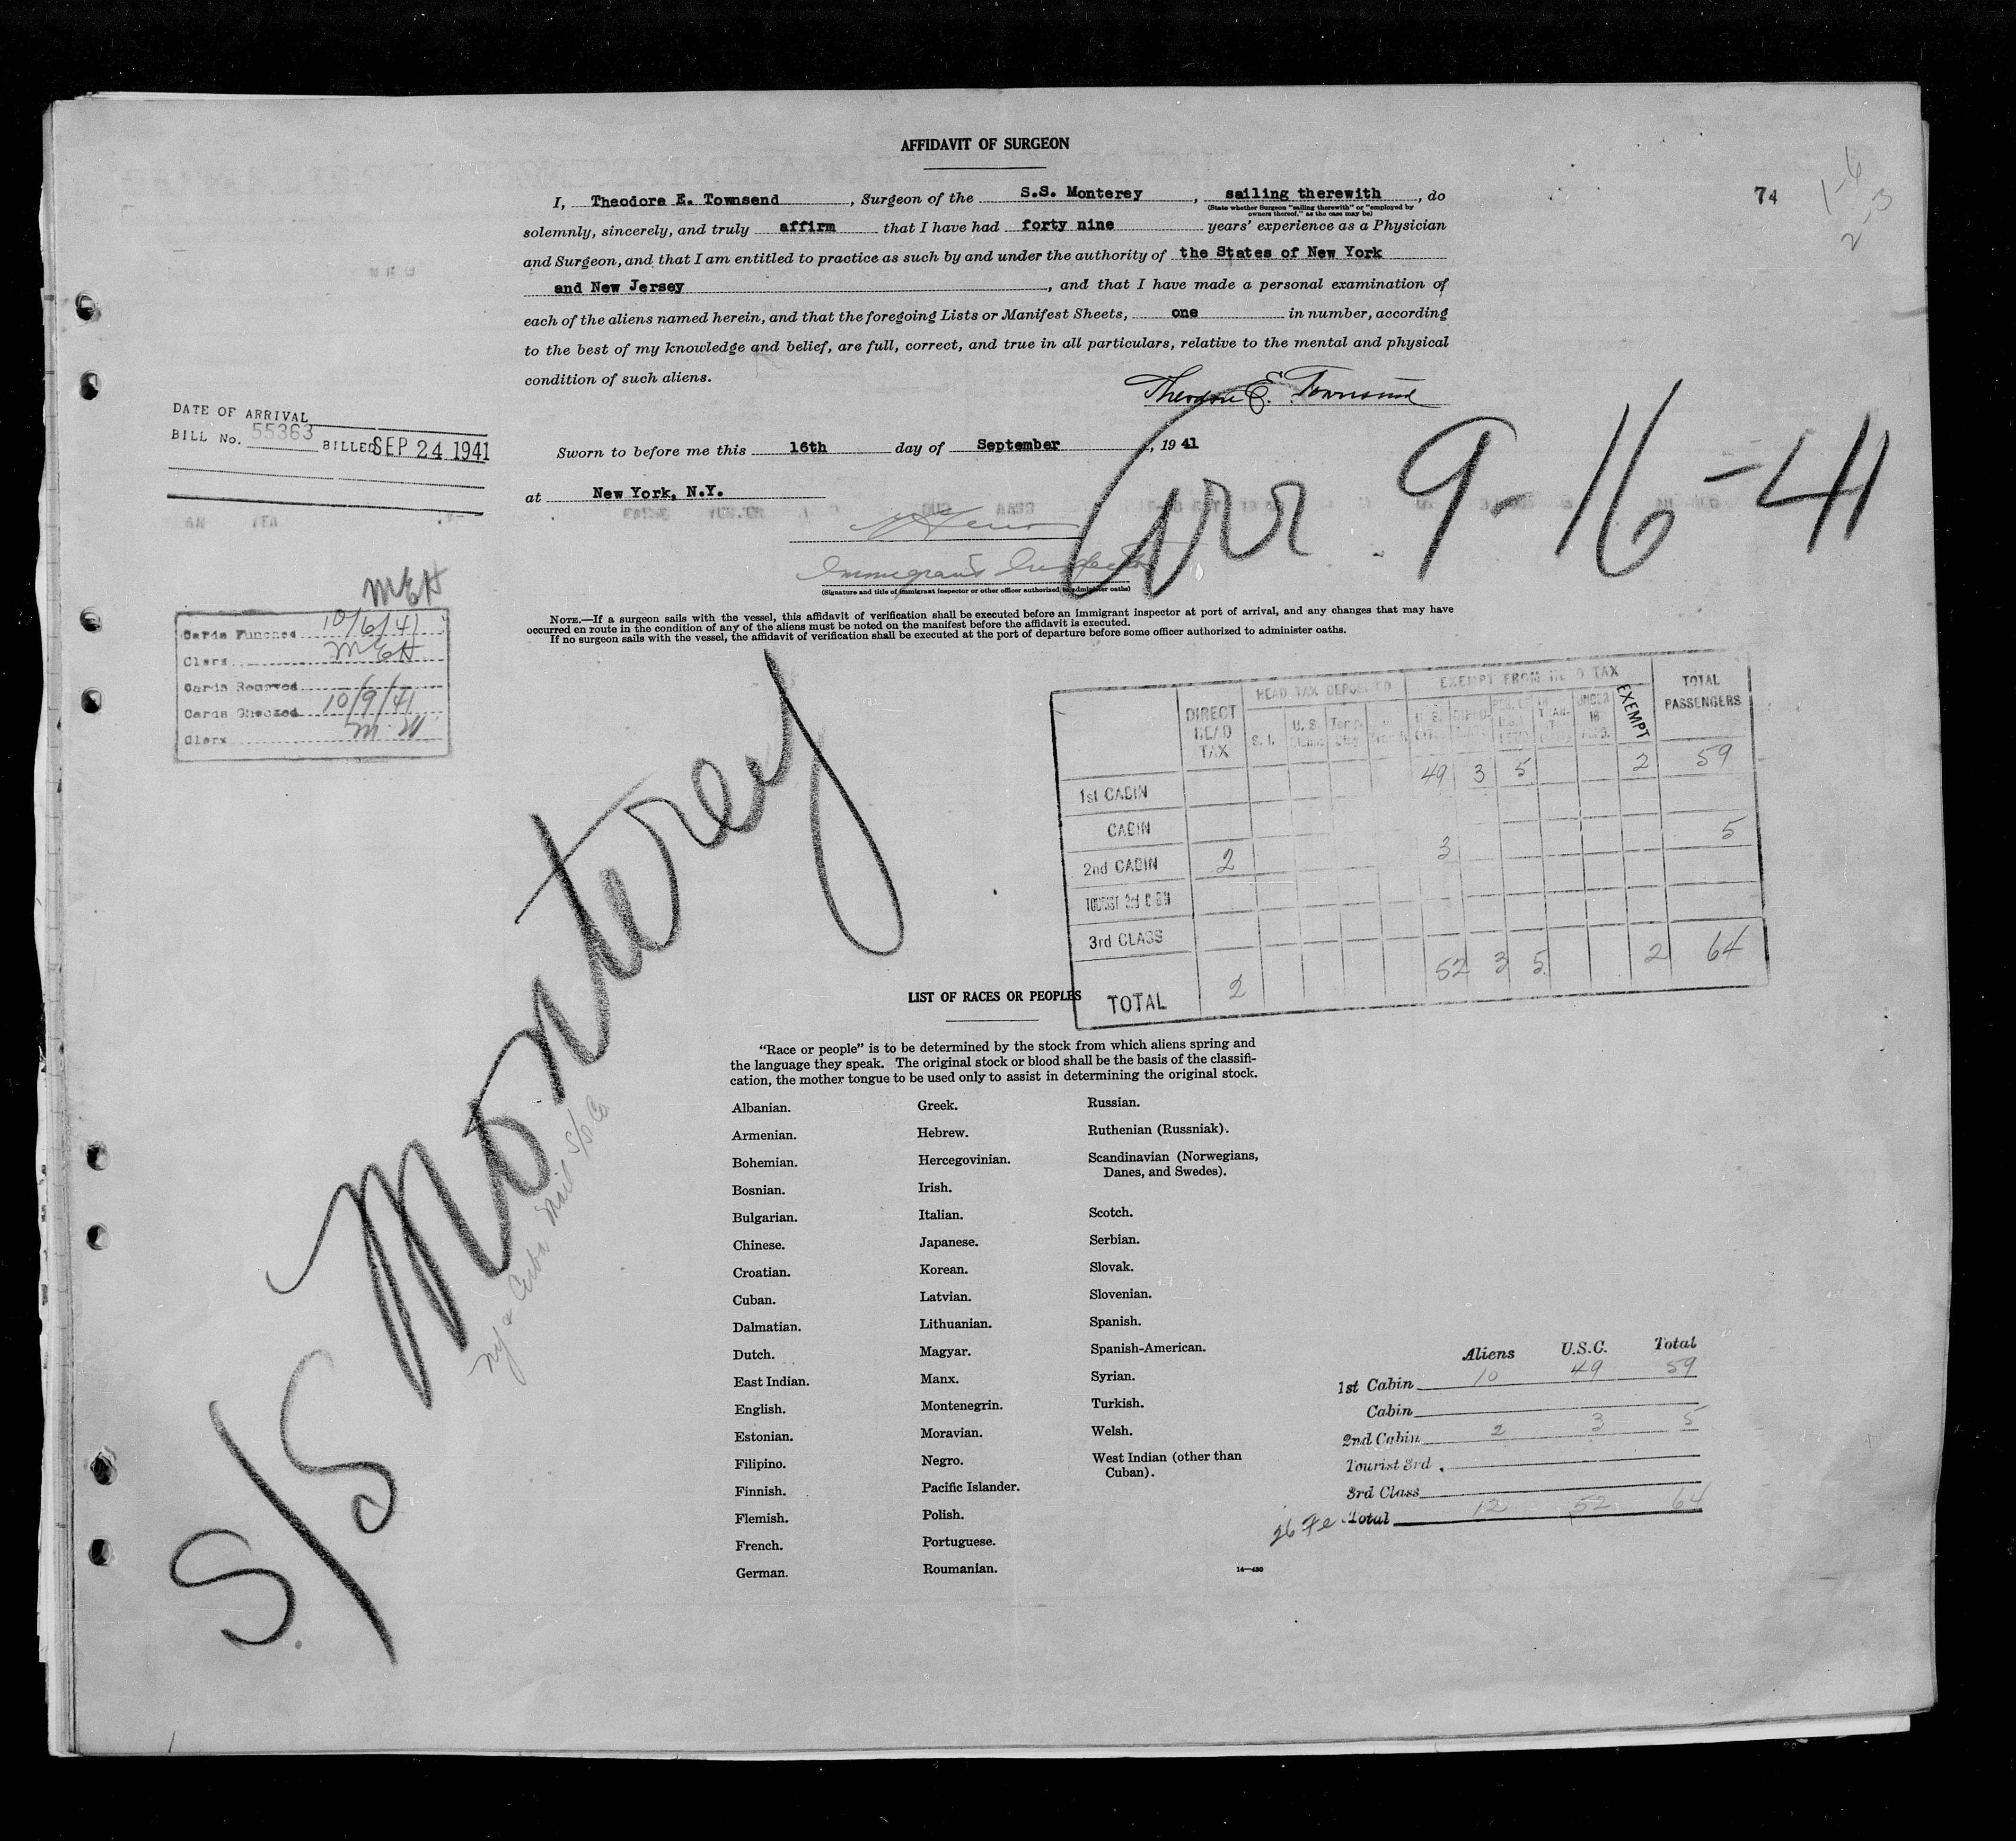 AFFIDAVIT OF SURGEON
74
1-6
2-3
I, Theodore E. Townsend, Surgeon of the S.S. Monterey, sailing therewith, do
(State whether Surgeon "sailing therewith" or "employed by
owners thereof," as the case may be)
solemnly, sincerely, and truly affirm that I have had forty nine years' experience as a Physician
and Surgeon, and that I am entitled to practice as such by and under the authority of the States of New York
and New Jersey, and that I have made a personal examination of
each of the aliens named herein, and that the foregoing Lists or Manifest Sheets, one in number, according
to the best of my knowledge and belief, are full, correct, and true in all particulars, relative to the mental and physical
condition of such aliens.
Theodore E. Townsend
DATE OF ARRIVAL
BILL No. 55363 BILLED SEP 24 1941
Sworn to before me this 16th day of September, 1941
at New York, N.Y.
Arr 9-16-41
Immigrant Inspector
(Signature and title of immigrant inspector or other officer authorized to administer oaths)
NOTE.—If a surgeon sails with the vessel, this affidavit of verification shall be executed before an immigrant inspector at port of arrival, and any changes that may have
occurred en route in the condition of any of the aliens must be noted on the manifest before the affidavit is executed.
If no surgeon sails with the vessel, the affidavit of verification shall be executed at the port of departure before some officer authorized to administer oaths.
MEH
Cards Punched 10/6/41
Clerk MEH
Cards Removed
Cards Checked 10/9/41
Clerk
S/S Monterey
NY & Cuba Mail S/S Co
DIRECT HEAD TAX
HEAD TAX DEPOSITED
EXEMPT FROM HEAD TAX
EXEMPT
TOTAL PASSENGERS
1st CABIN 49 3 5 2 59
CABIN
2nd CABIN 2 3 5
TOURIST 3rd CABIN
3rd CLASS
TOTAL 2 52 3 5 2 64
LIST OF RACES OR PEOPLES
"Race or people" is to be determined by the stock from which aliens spring and
the language they speak. The original stock or blood shall be the basis of the classifi-
cation, the mother tongue to be used only to assist in determining the original stock.
Albanian.
Armenian.
Bohemian.
Bosnian.
Bulgarian.
Chinese.
Croatian.
Cuban.
Dalmatian.
Dutch.
East Indian.
English.
Estonian.
Filipino.
Finnish.
Flemish.
French.
German.
Greek.
Hebrew.
Hercegovinian.
Irish.
Italian.
Japanese.
Korean.
Latvian.
Lithuanian.
Magyar.
Manx.
Montenegrin.
Moravian.
Negro.
Pacific Islander.
Polish.
Portuguese.
Roumanian.
Russian.
Ruthenian (Russniak).
Scandinavian (Norwegians,
Danes, and Swedes).
Scotch.
Serbian.
Slovak.
Slovenian.
Spanish.
Spanish-American.
Syrian.
Turkish.
Welsh.
West Indian (other than
Cuban).
14—430
Aliens U.S.C. Total
1st Cabin 10 49 59
Cabin
2nd Cabin 2 3 5
Tourist 3rd
3rd Class
Total 12 52 64